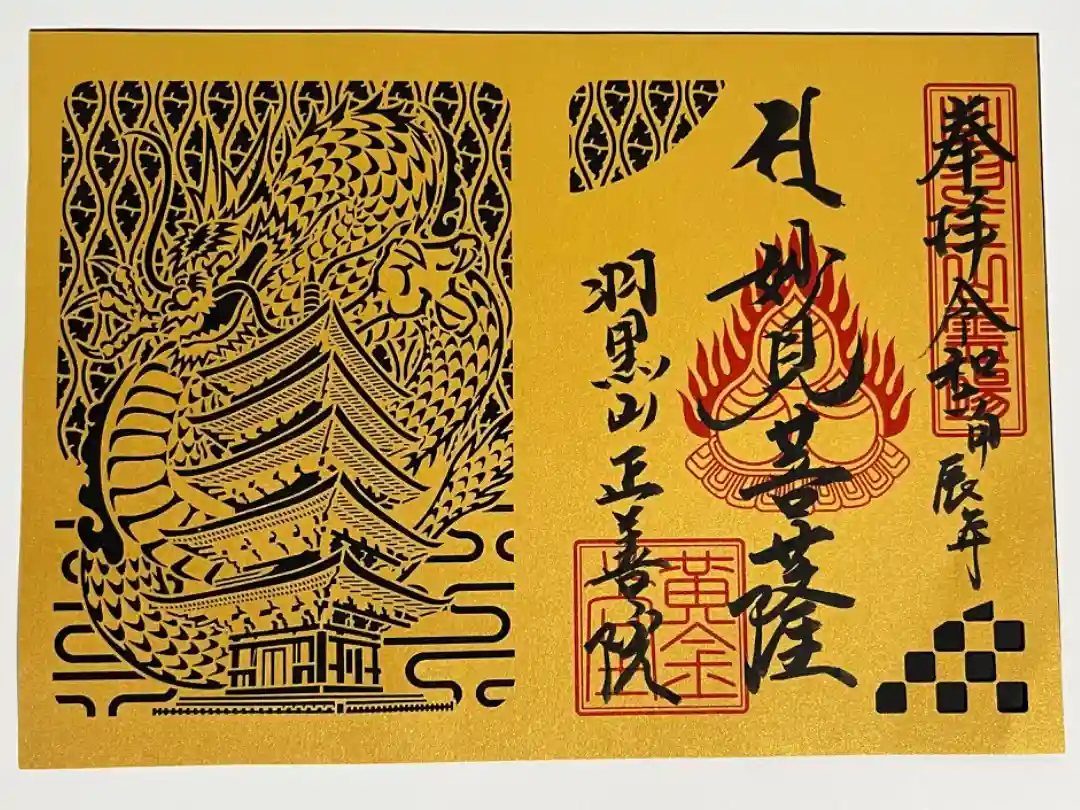 奉拝 令和甲辰年
妙見菩薩
羽黒山正善院
黄金